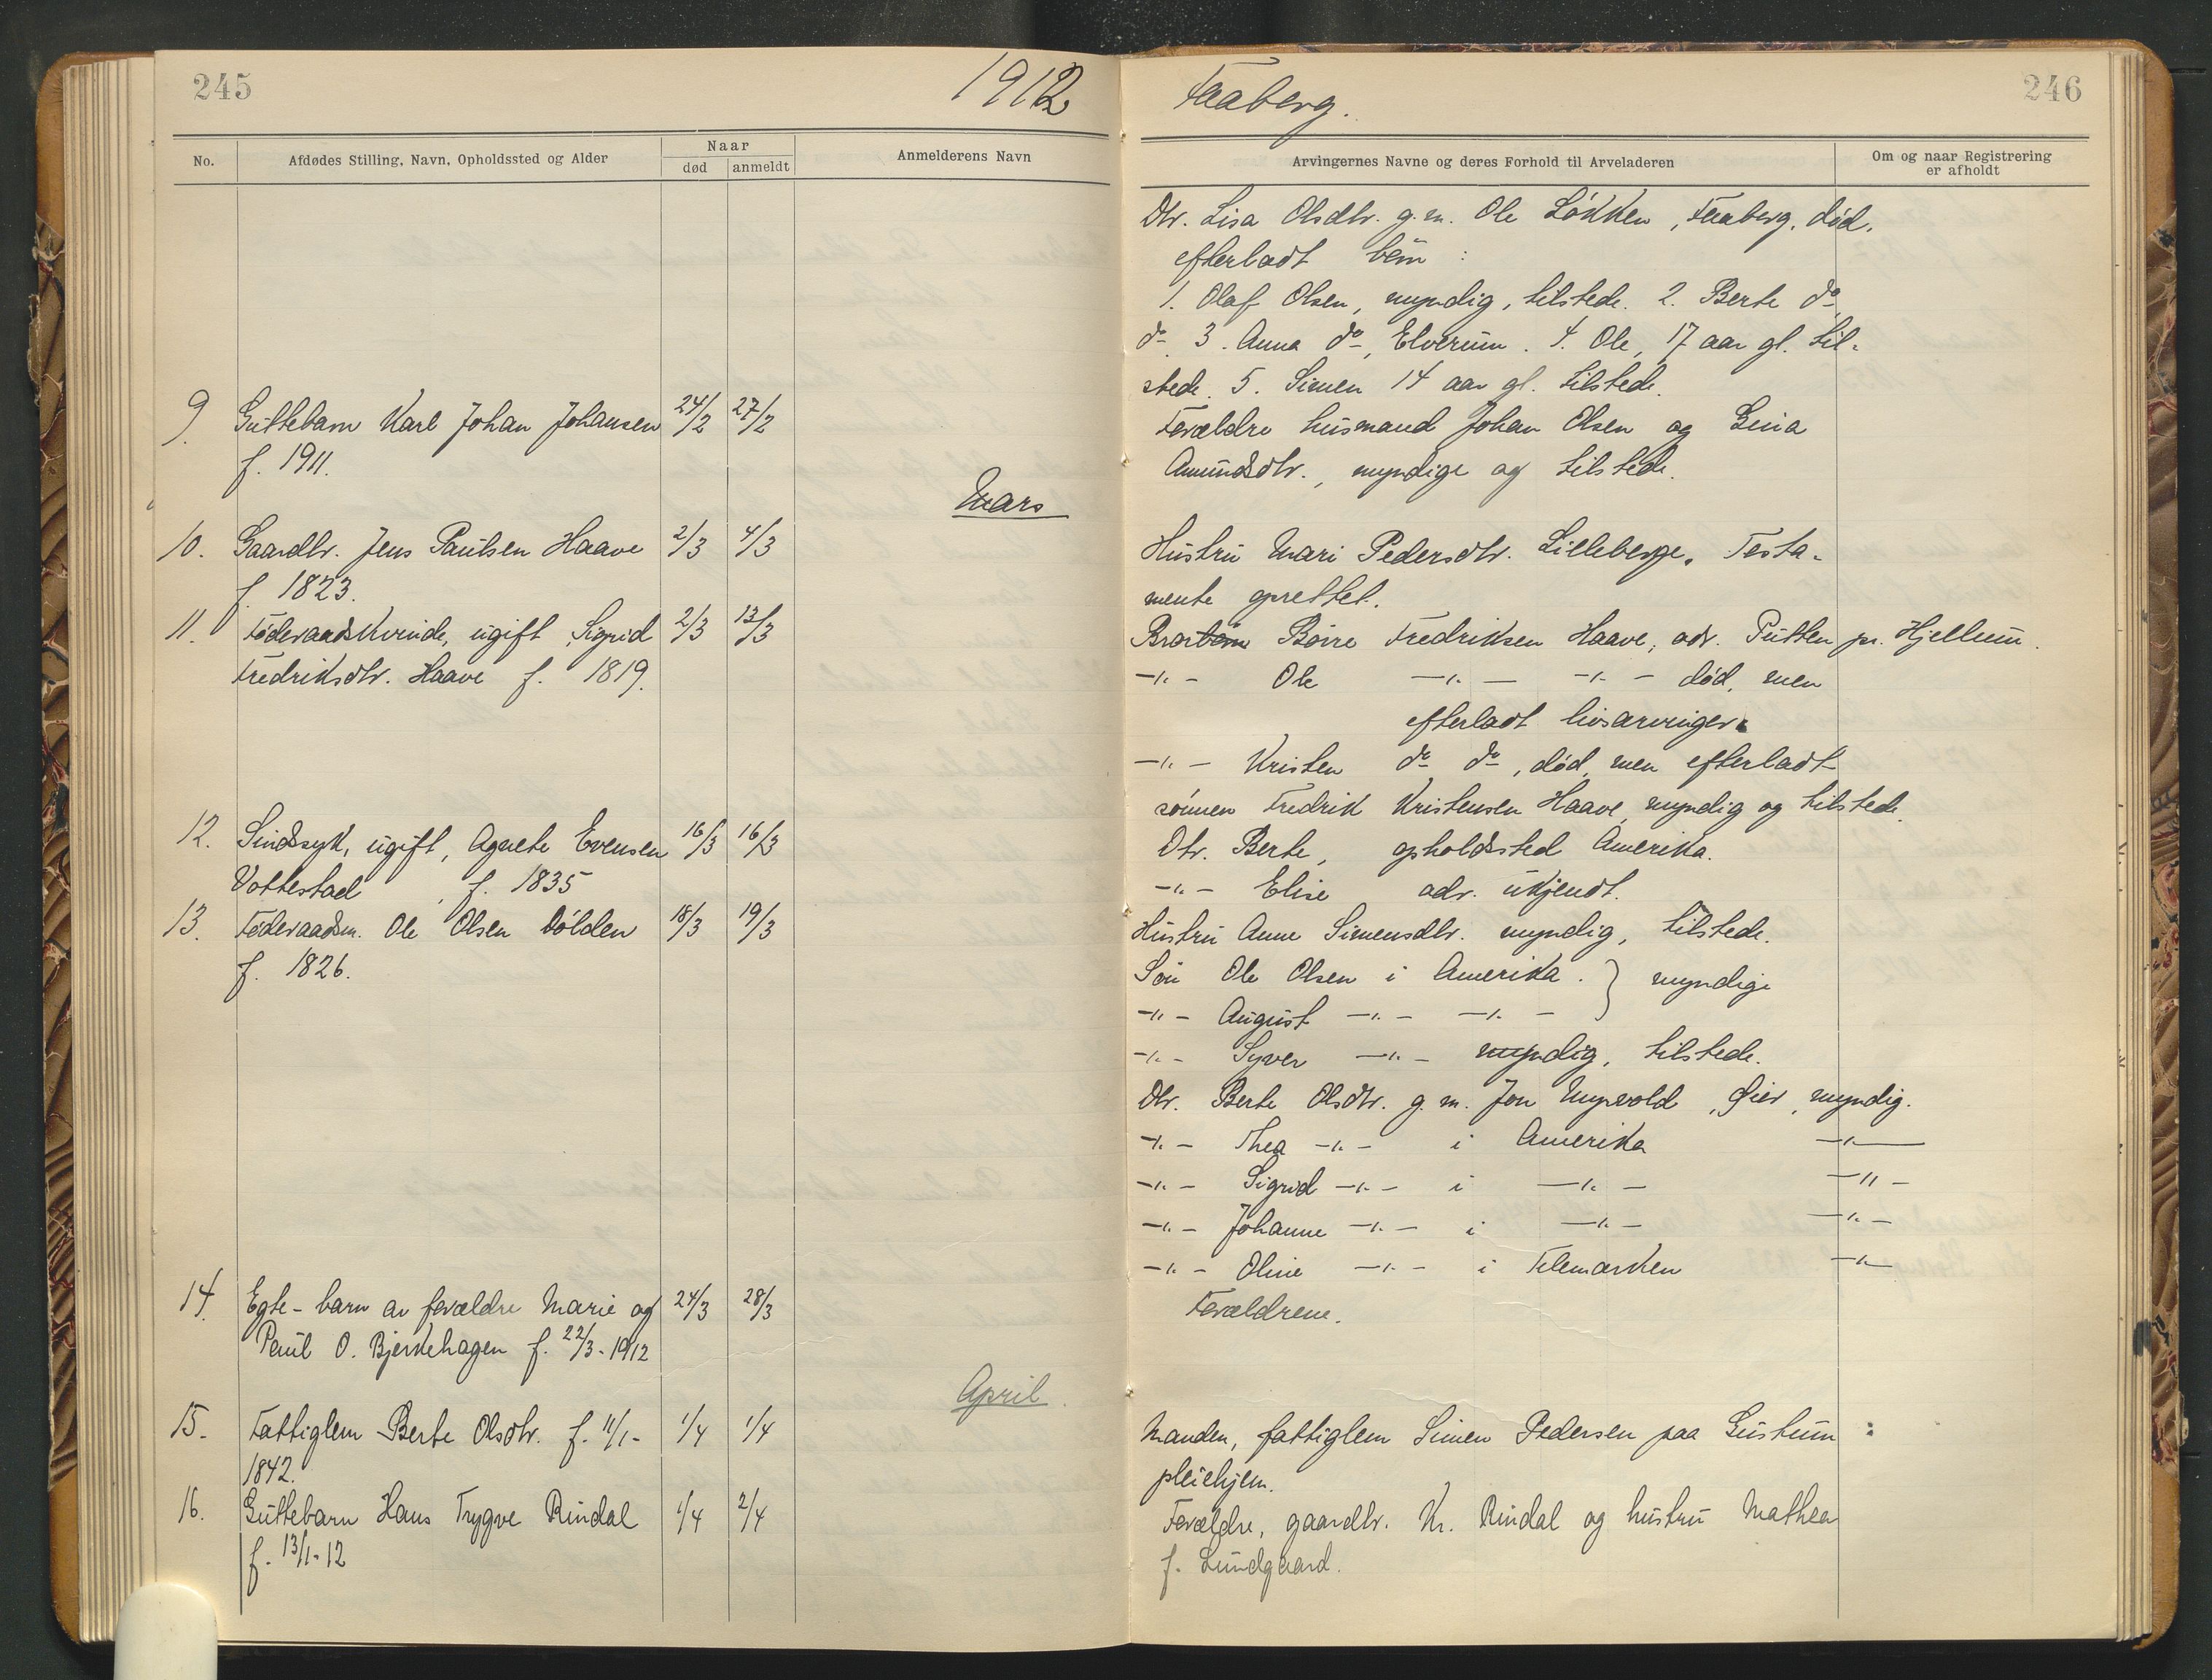 245
1912
No.
Afdødes Stilling, Navn, Opholdssted og Alder
Naar
død
anmeldt
Anmelderens Navn
9. Guttebarn Karl Johan Johansen 24/2 27/2
f. 1911.
Mars
10. Gaardbr. Jens Paulsen Haave 2/3 4/3
f. 1823.
11. Føderaadskvinde, ugift, Sigrid 2/3 13/3
Fredriksdtr. Haave f. 1819.
12. Sindssyk, ugift, Agnete Evensen 16/3 16/3
Vottestad, f. 1835
13. Føderaadsm. Ole Olsen 18/3 19/3
f. 1826.
14. Egte-barn av forældre Marie og 24/3 28/3
Paul O. Bjerkehagen f. 22/3-1912
April.
15. Fattiglem Berte Olsdtr. f. 11/1- 1/4 1/4
1842.
16. Guttebarn Hans Trygve Rindal 1/4 2/4
f. 13/1-12
246
Faaberg.
Arvingernes Navne og deres Forhold til Arveladeren
Om og naar Registrering
er afholdt
Dtr. Lisa Olsdtr. g. m. Ole Løkken, Faaberg, død,
efterladt børn:
1. Olaf Olsen, myndig, tilstede. 2. Berte do
do 3. Anna do, Elverum. 4. Ole, 17 aar gl. til-
stede. 5. Simen 14 aar gl. tilstede.
Forældre husmand Johan Olsen og Gina
Amundsdtr., myndige og tilstede.
Hustru Mari Pedersdtr. Lilleberge. Testa-
mente oprettet.
Brorbørn Børre Fredriksen Haave, adr. Putten pr. Hjellum.
-"- Ole -"- -"- død, men
efterladt livsarvinger.
-"- Kristen do do, død, men efterladt
sønnen Fredrik Kristensen Haave, myndig og tilstede.
Dtr. Berte, opholdssted Amerika.
-"- Elise adr. ukjendt.
Hustru Anne Simensdtr. myndig, tilstede.
Søn Ole Olsen i Amerika. } myndige
-"- August -"- -"-
-"- Syver -"- myndig, tilstede.
Dtr. Berte Olsdtr. g. m. Jon Myrvold, Øier, myndig.
-"- Thea -"- i Amerika -"-
-"- Sigrid -"- i -"- -"-
-"- Johanne -"- i -"- -"-
-"- Oline -"- i Telemarken -"-
Forældrene.
Manden, fattiglem Simen Pedersen paa Gustum
pleiehjem.
Forældre, gaardbr. Kr. Rindal og hustru Mathea
f. Lundgaard.